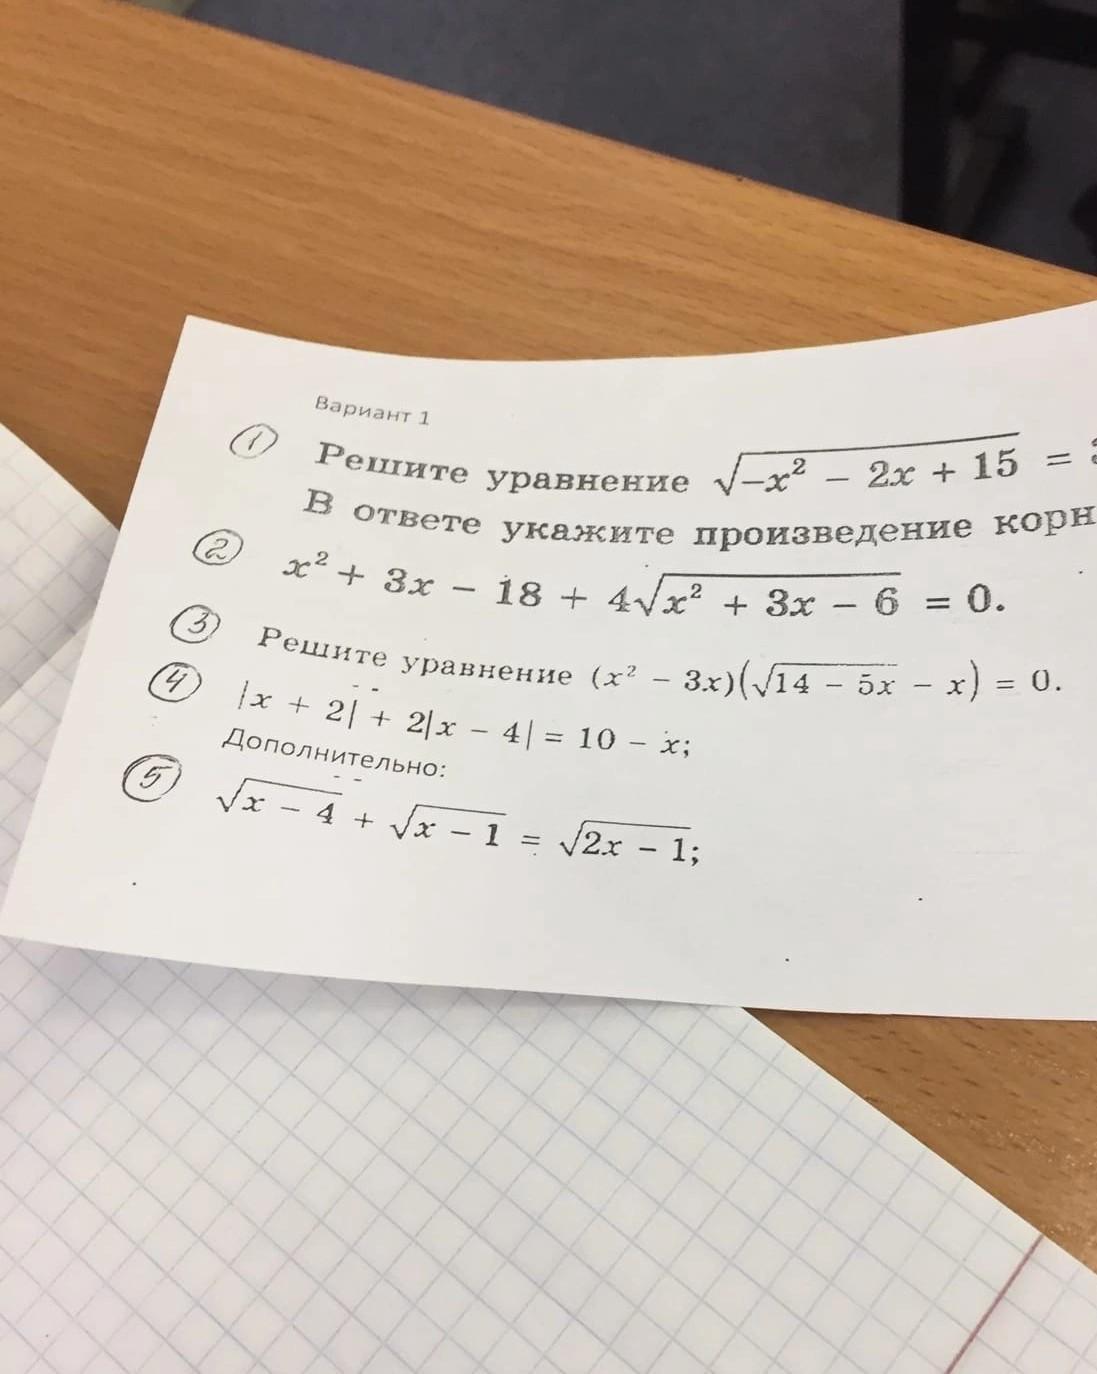 Вариант 1
① Решите уравнение √(−x² − 2x + 15) =
В ответе укажите произведение
② x² + 3x − 18 + 4√(x² + 3x − 6) = 0.
③ Решите уравнение (x² − 3x)(√(14 − 5x) − x) = 0.
④ |x + 2| + 2|x − 4| = 10 − x;
Дополнительно:
⑤ √(x − 4) + √(x − 1) = √(2x − 1);